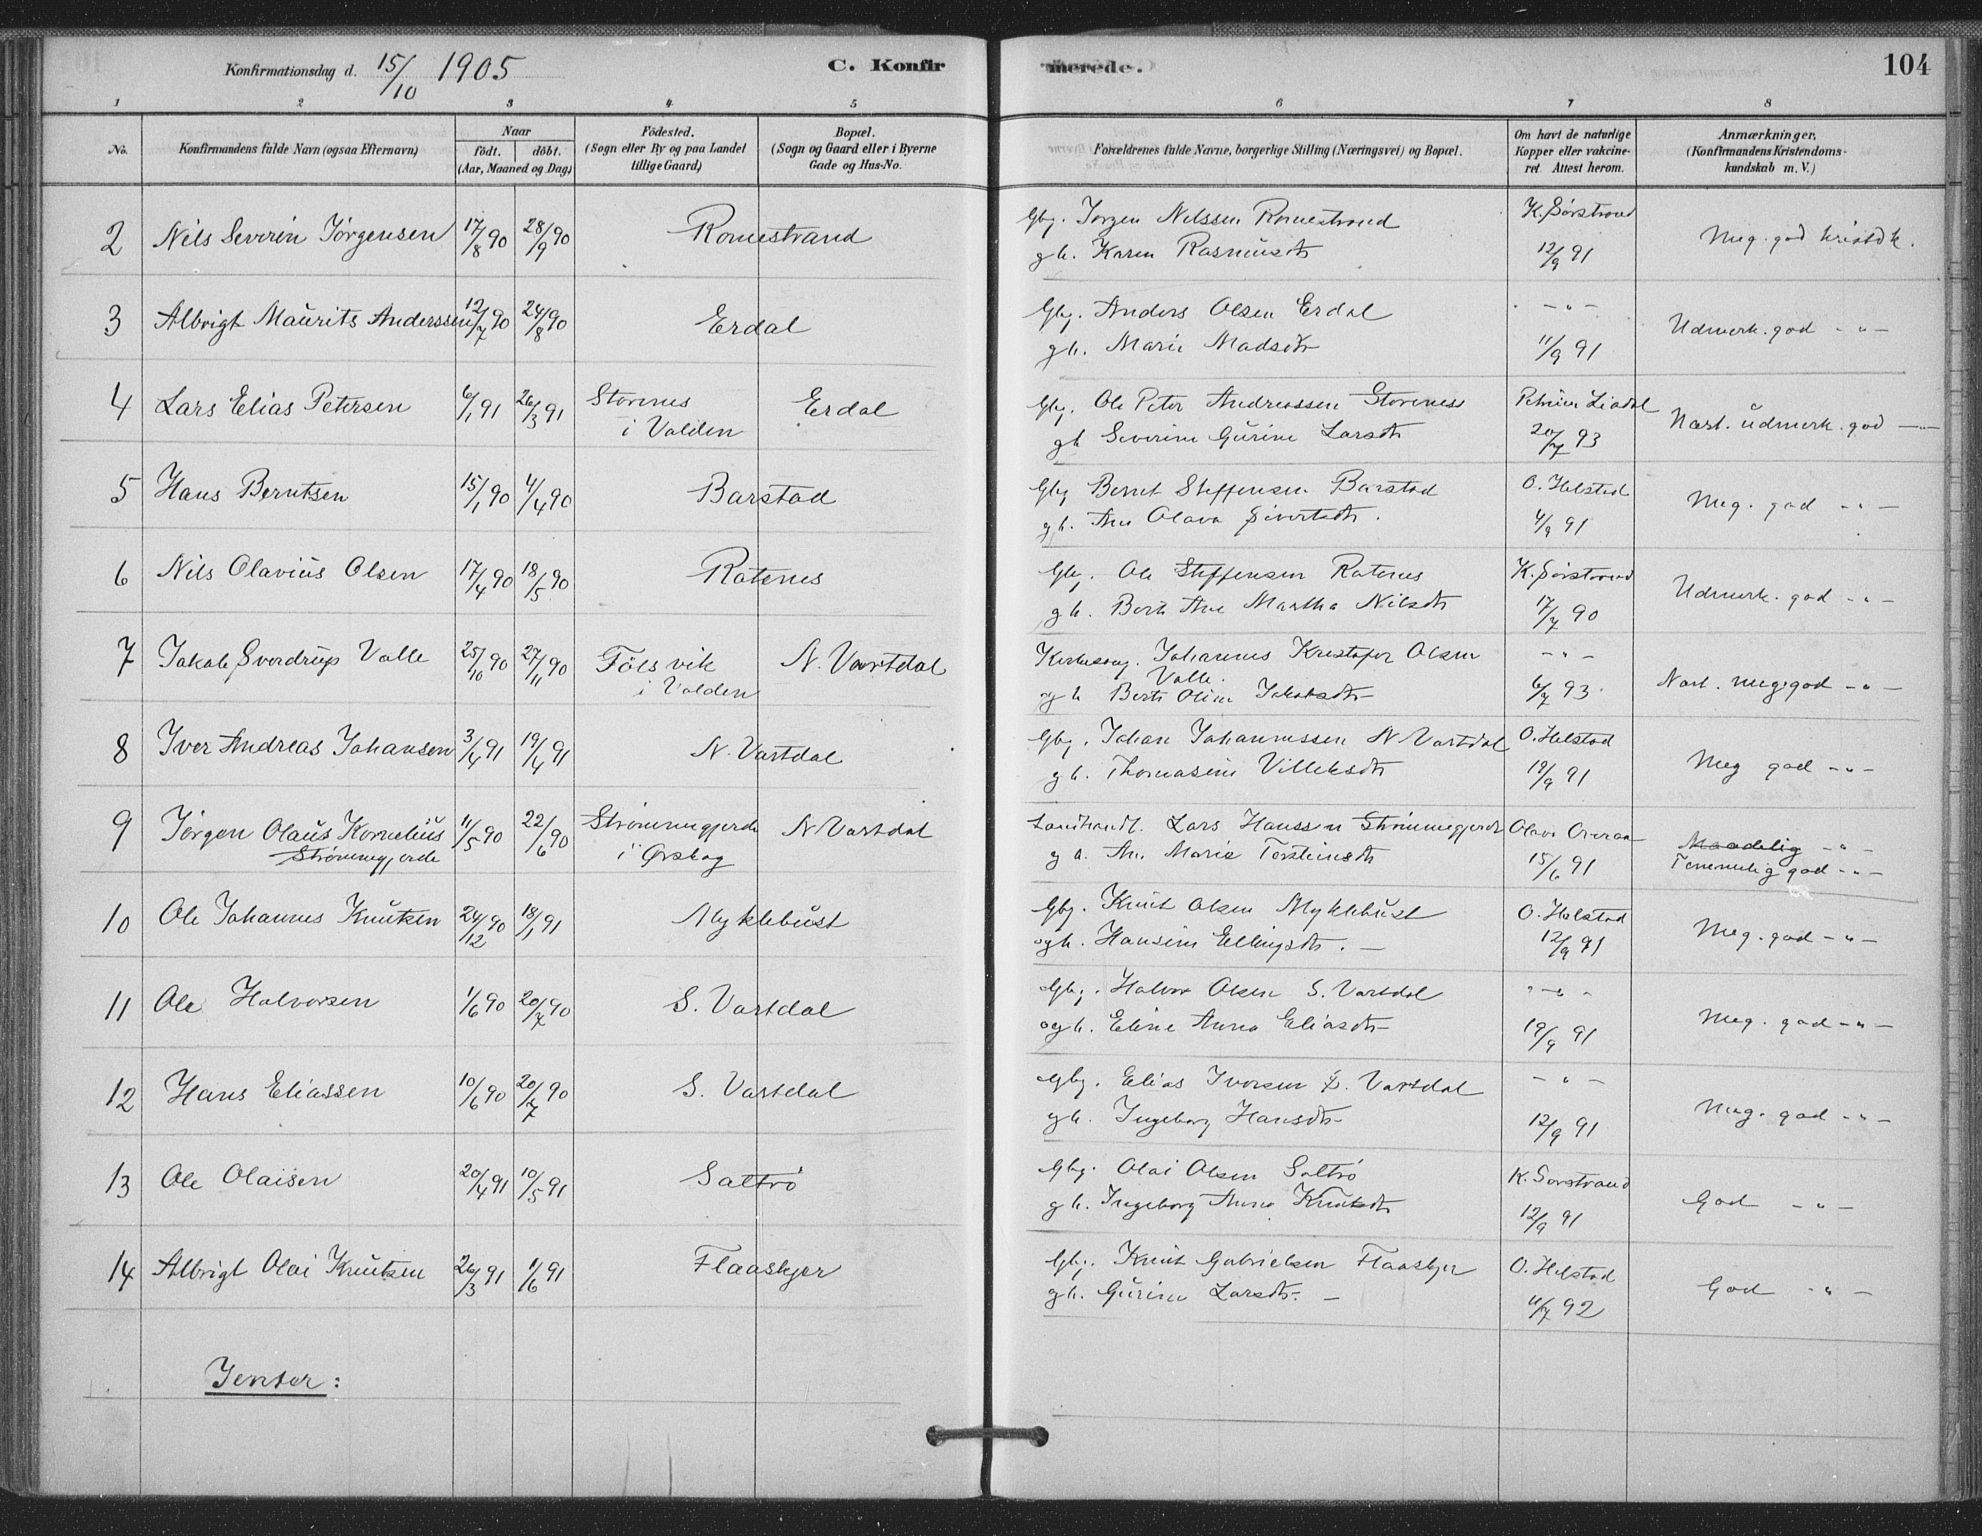 Konfirmationsdag d. 15/10 1905 C. Konfirmerede. 104
1 2 3 4 5 6 7 8
No. Konfirmandens fulde Navn (ogsaa Efternavn) Naar født. døbt. (Aar, Maaned og Dag) Födested. (Sogn eller By og paa Landet tillige Gaard) Bopæl. (Sogn og Gaard eller i Byerne Gade og Hus-No. Forældrenes fulde Navne, borgerlige Stilling (Næringsvei) og Bopæl. Om havt de naturlige Kopper eller vakcineret. Attest herom. Anmærkninger. (Konfirmandens Kristendomskundskab m. V.)
2 Nils Severin Jörgensen 17/8 90 28/9 90 Romestrand Gbg. Jørgen Nilssen Romestrand K. Sørstrand Meg. god kristdk.
gh. Karen Rasmusdtr 12/9 91
3 Albrigt Maurits Anderssen 12/7 90 24/8 90 Erdal Gbg. Anders Olsen Erdal - " - Udmerk. god - " -
gh. Marie Madsdtr 11/9 91
4 Lars Elias Petersen 6/1 91 26/3 91 Storenes Erdal Gbg. Ole Peter Andreassen Storeness Liadal Næst. udmerk. god - " -
i Volden gh Severine Gurine Larsdtr 20/7 93
5 Hans Berntsen 15/1 90 4/4 90 Barstad Gbg Bernt Steffensen Barstad O. Helstad Meg. god - " -
gh. Ane Olava Sivertsdtr. 4/9 91
6 Nils Olavius Olsen 17/4 90 18/5 90 Ratenes Gbg. Ole Steffensen Ratenes K. Sørstrand Udmerk. god - " -
gh. Berte Ane Martha Nilsdtr 17/7 90
7 Jakob Sverdrup Valle 25/10 90 27/11 90 Fölsvik N. Vartdal Kirkesang. Johannes Kristofer Olsen - " -
i Volden Valle. Næst. meg. god - " -
og h Berte Oline Jakobsdtr 6/7 93
8 Iver Andreas Johansen 3/4 91 19/4 91 N. Vartdal Gbg. Johan Johannessen N. Vartdal O. Helstad Meg god - " -
gh. Thomasine Villiksdtr 19/9 91
9 Jörgen Olaus Kornelius 11/5 90 22/6 90 Strømmegjerde N. Vartdal Landhandl. Lars Hanssen Strømmegjerde Olava Overaa Maadelig - " -
Strømmegjerde i Ørskog g h. Ane Marie Torsteinsdtr 15/6 91 Temmelig god - " -
10 Ole Johannes Knutsen 24/12 90 18/1 91 Myklebust Gbg. Knut Olsen Myklebust O. Helstad Meg. god - " -
ogh. Hansine Ellingsdtr. 12/9 91
11 Ole Halvorsen 1/6 90 20/7 90 S. Vartdal Gbg. Halvor Olsen S. Vartdal - " - Meg. god - " -
ogh. Eline Anna Eliasdtr 19/9 91
12 Hans Eliassen 10/6 90 20/7 90 S. Vartdal Gbg. Elias Iversen S. Vartdal - " - Meg. god - " -
gh. Ingeborg Hansdtr 12/9 91
13 Ole Olaisen 20/4 91 10/5 91 Saltrö Gbg. Olai Olsen Saltrö K. Sorstrand God - " -
gh. Ingeborg Anna Knutsdtr 12/9 91
14 Albrigt Olai Knutsen 26/3 91 1/6 91 Flaaskjer Gbg. Knut Gabrielsen Flaaskjer O. Helstad God - " -
gh. Gurine Larsdtr. - 11/7 92
Jenter: